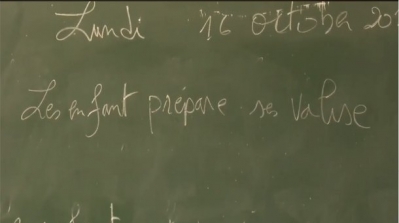 Lundi 16 octobre 20
Les enfant prépare ses valise